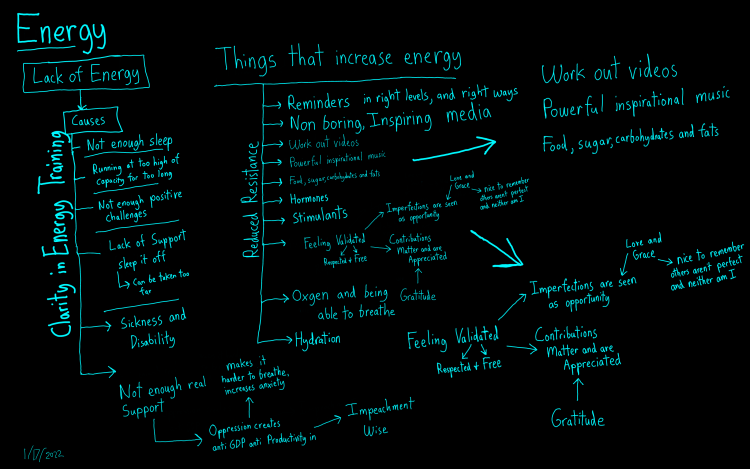 Energy
Lack of Energy
Causes
Clarity in Energy Training
Not enough sleep
Running at too high of
capacity for too long
Not enough positive
challenges
Lack of Support
sleep it off
Can be taken too
far
Sickness and
Disability
Not enough real
Support
makes it
harder to breathe,
increases anxiety
Oppression creates
anti GDP anti Productivity in
Impeachment
Wise
1/17/2022
Things that increase energy
Reduced Resistance
Reminders in right levels, and right ways
Non boring, Inspiring media
Work out videos
Powerful inspirational music
Food, sugar, carbohydrates and fats
Hormones
Stimulants
Feeling Validated
Respected + Free
Imperfections are seen
as opportunity
Love and
Grace
nice to remember
others aren't perfect
and neither am I
Contributions
Matter and are
Appreciated
Gratitude
Oxgen and being
able to breathe
Hydration
Work out videos
Powerful inspirational music
Food, sugar, carbohydrates and fats
Love and
Grace
nice to remember
others aren't perfect
and neither am I
Imperfections are seen
as opportunity
Feeling Validated
Respected + Free
Contributions
Matter and are
Appreciated
Gratitude